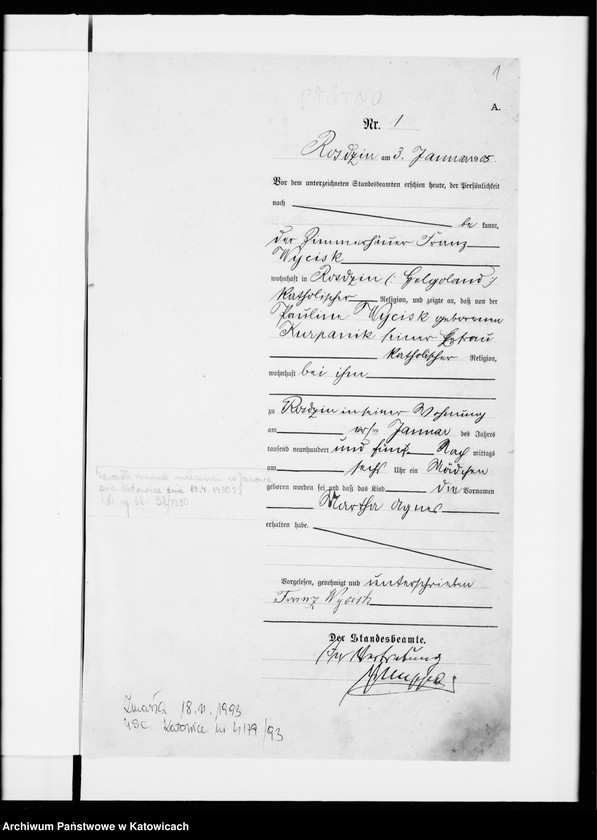 1
A.
Nr. 1
Rosdzin am 3. Januar 1905.
Vor dem unterzeichneten Standesbeamten erschien heute, der Persönlichkeit
nach
be kannt,
der Zimmerhäuer Franz
Wycisk
wohnhaft in Rosdzin (: Helgoland :)
katholischer Religion, und zeigte an, daß von der
Pauline Wycisk geborenen
Kurpanik seiner Ehefrau
katholischer Religion,
wohnhaft bei ihm
zu Rosdzin in seiner Wohnung
am ersten Januar des Jahres
tausend neunhundert und fünf Nach mittags
um sechs Uhr ein Mädchen
geboren worden sei und daß das Kind die Vornamen
Martha Agnes
erhalten habe.
Vorgelesen, genehmigt und unterschrieben
Franz Wycisk
Der Standesbeamte.
In Vertretung
Zmarła 18.11.1993
USC Katowice nr 4179/93
Archiwum Państwowe w Katowicach